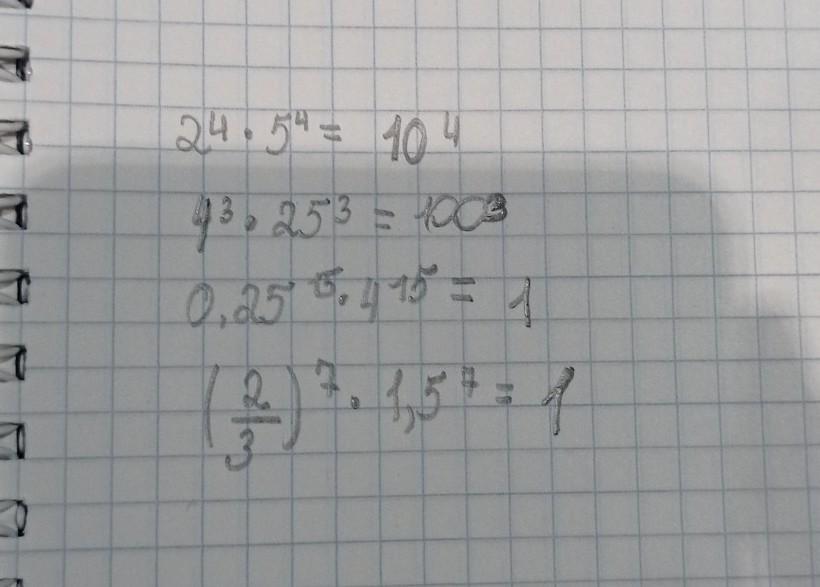 2⁴ · 5⁴ = 10⁴
4³ · 25³ = 100³
0,25¹⁵ · 4¹⁵ = 1
(2/3)⁷ · 1,5⁷ = 1